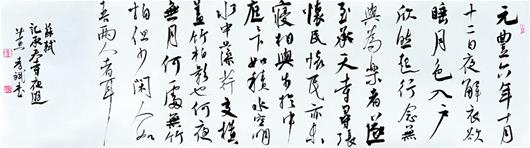 元豐六年十月
十二日夜解衣欲
睡月色入户
欣然起行念無
與為樂者遂
至承天寺尋張
懷民懷民亦未
寢相與步於中
庭下如積水空明
水中藻荇交橫
蓋竹柏影也何夜
無月何處無竹
柏但少閑人如
吾兩人者耳
蘇軾
記承天寺夜遊